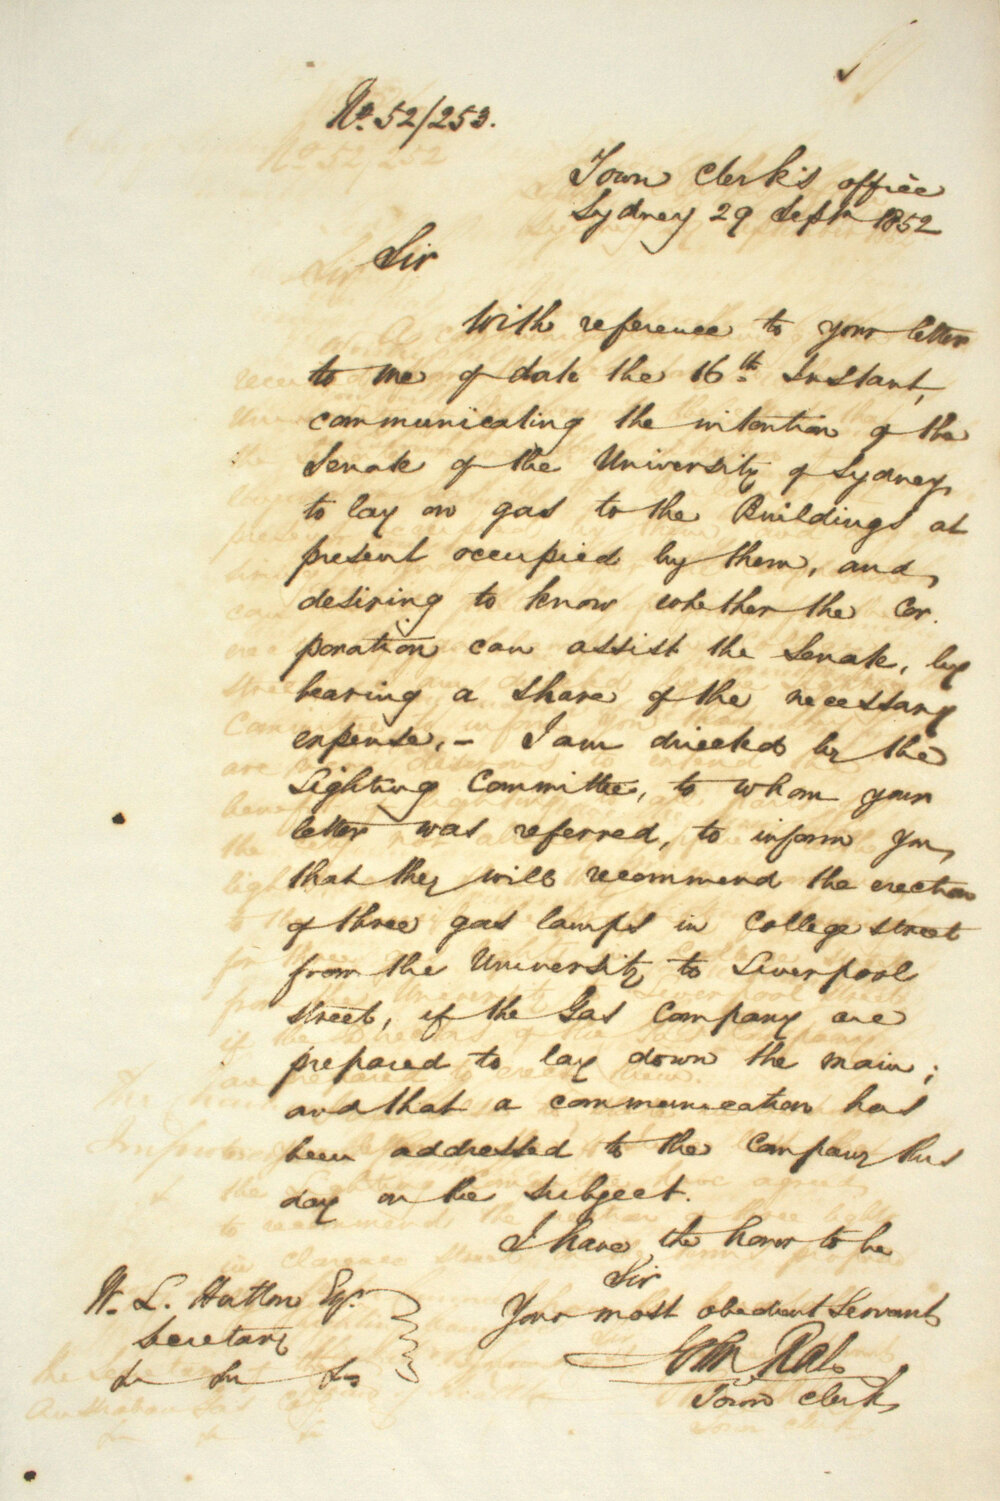 No. 52/253.
Town Clerk's office
Sydney 29 Septr 1852
Sir
With reference to your letter
to me of date the 16th Instant,
communicating the intention of the
Senate of the University of Sydney,
to lay on gas to the Buildings at
present occupied by them, and,
desiring to know whether the Cor.
poration can assist the Senate, by
bearing a share of the necessary
expense, - I am directed by the
Lighting Committee, to whom your
letter was referred, to inform you,
that they will recommend the erection
of three gas lamps in College street
from the University to Liverpool
street, if the Gas Company are
prepared to lay down the main;
and that a communication has
been addressed to the Company this
day on the subject.
I have the honor to be
Sir
Your most obedient Servant
John
Town Clerk
W. L. Hutton Esqr.
Secretary